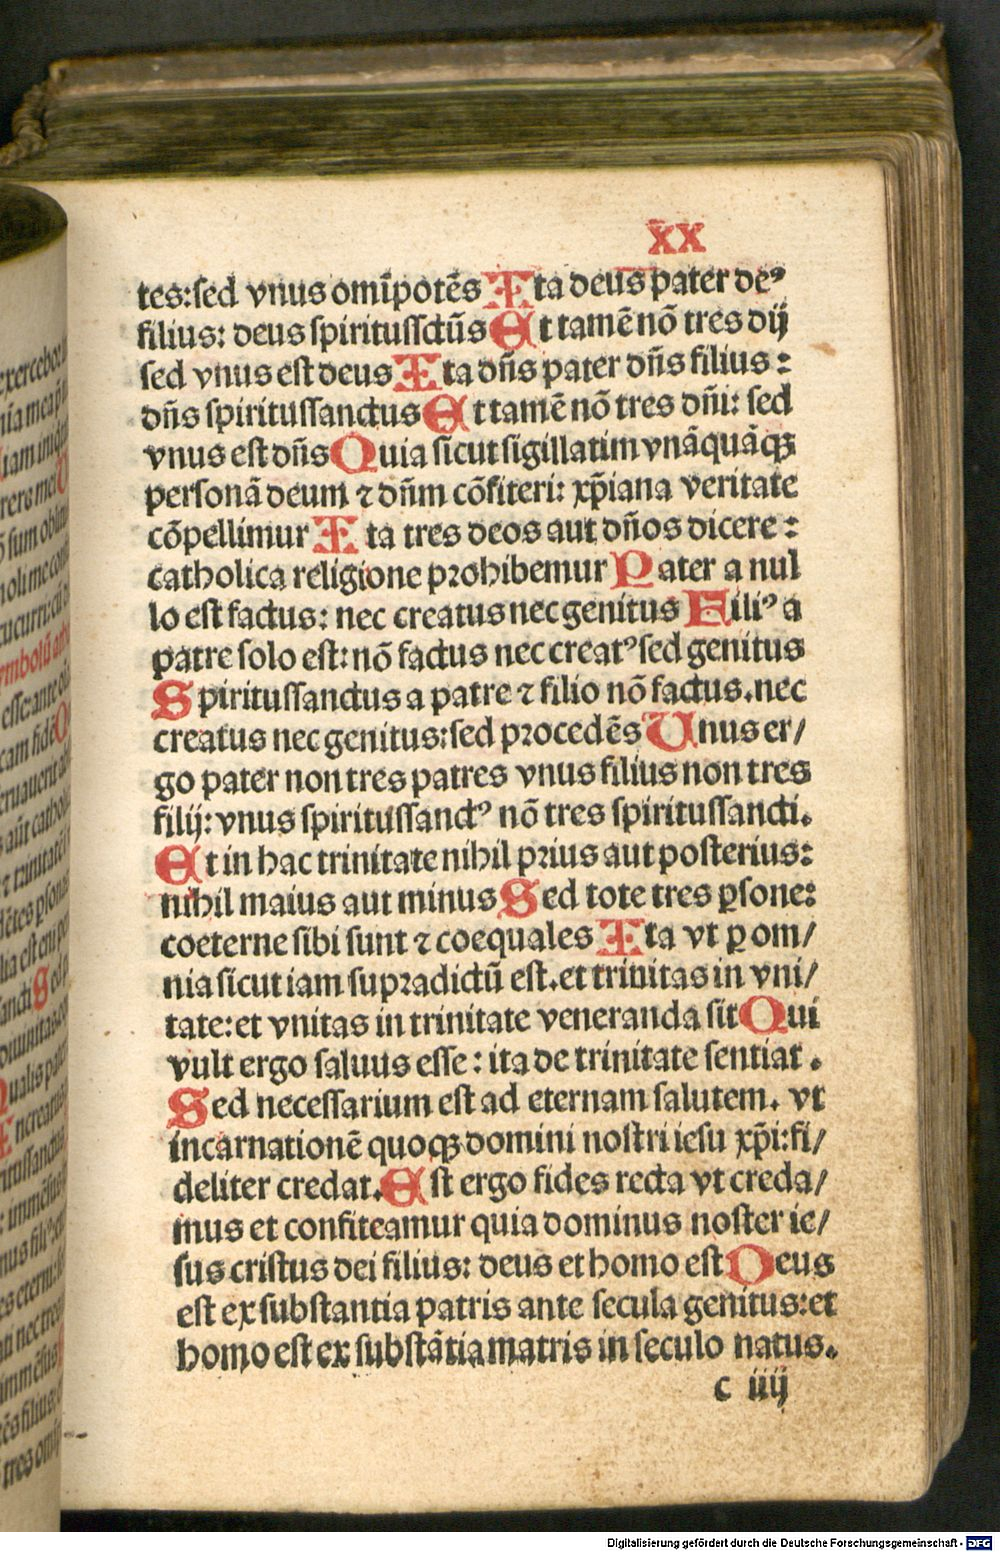 XX
tes:sed vnus omīpotēs Ita deus pater deꝰ
filius: deus spiritussctūs Et tamē nō tres dij
sed vnus est deus Ita dn̄s pater dn̄s filius:
dn̄s spiritussanctus Et tamē nō tres dn̄i: sed
vnus est dn̄s Quia sicut sigillatim vnāquāqꝫ
personā deum ⁊ dn̄m cōfiteri: xp̄iana veritate
cōpellimur Ita tres deos aut dn̄os dicere:
catholica religione prohibemur Pater a nul
lo est factus: nec creatus nec genitus Filiꝰ a
patre solo est: nō factus nec creatꝰ sed genitus
Spiritussanctus a patre ⁊ filio nō factus.nec
creatus nec genitus:sed procedēs Unus er/
go pater non tres patres vnus filius non tres
filij: vnus spiritussanctꝰ nō tres spiritussancti.
Et in hac trinitate nihil prius aut posterius:
nihil maius aut minus Sed tote tres ꝑsone:
coeterne sibi sunt ⁊ coequales Ita vt ꝑ om/
nia sicut iam supradictū est.et trinitas in vni/
tate:et vnitas in trinitate veneranda sit Qui
vult ergo saluus esse: ita de trinitate sentiat.
Sed necessarium est ad eternam salutem. vt
incarnationē quoqꝫ domini nostri iesu xp̄i:fi/
deliter credat. Est ergo fides recta vt creda/
mus et confiteamur quia dominus noster ie/
sus cristus dei filius: deus et homo est Deus
est ex substantia patris ante secula genitus:et
homo est ex substātia matris in seculo natus.
c iiij
Digitalisierung gefördert durch die Deutsche Forschungsgemeinschaft - DFG